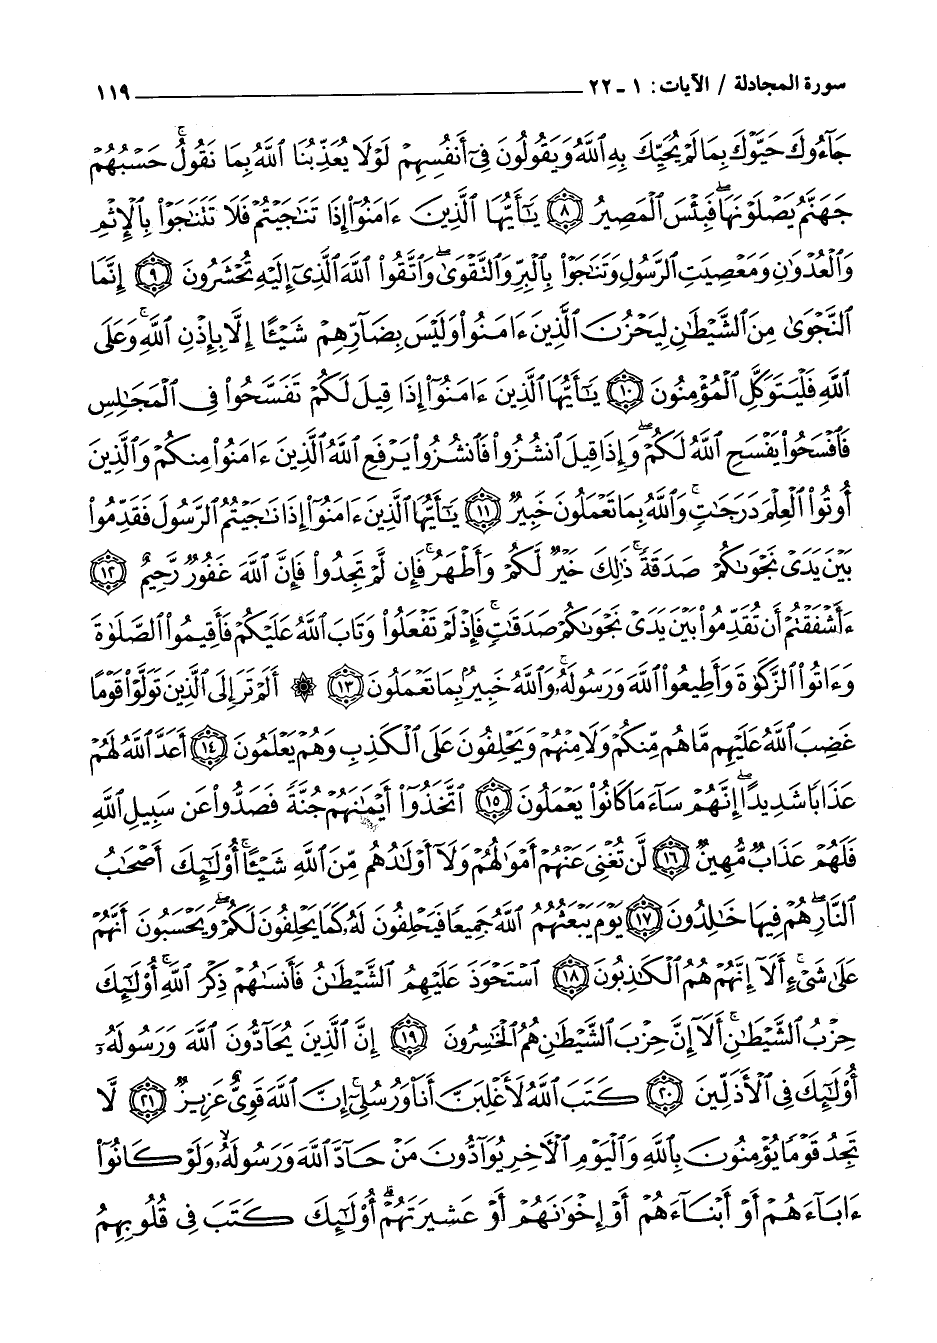 سورة المجادلة / الآيات: ١ - ٢٢ ١١٩
جَآءُوكَ حَيَّوْكَ بِمَا لَمْ يُحَيِّكَ بِهِ ٱللَّهُ وَيَقُولُونَ فِىٓ أَنفُسِهِمْ لَوْلَا يُعَذِّبُنَا ٱللَّهُ بِمَا نَقُولُ ۚ حَسْبُهُمْ
جَهَنَّمُ يَصْلَوْنَهَا ۖ فَبِئْسَ ٱلْمَصِيرُ ٨ يَٰٓأَيُّهَا ٱلَّذِينَ ءَامَنُوٓا۟ إِذَا تَنَٰجَيْتُمْ فَلَا تَتَنَٰجَوْا۟ بِٱلْإِثْمِ
وَٱلْعُدْوَٰنِ وَمَعْصِيَتِ ٱلرَّسُولِ وَتَنَٰجَوْا۟ بِٱلْبِرِّ وَٱلتَّقْوَىٰ ۖ وَٱتَّقُوا۟ ٱللَّهَ ٱلَّذِىٓ إِلَيْهِ تُحْشَرُونَ ٩ إِنَّمَا
ٱلنَّجْوَىٰ مِنَ ٱلشَّيْطَٰنِ لِيَحْزُنَ ٱلَّذِينَ ءَامَنُوا۟ وَلَيْسَ بِضَآرِّهِمْ شَيْـًٔا إِلَّا بِإِذْنِ ٱللَّهِ ۚ وَعَلَى
ٱللَّهِ فَلْيَتَوَكَّلِ ٱلْمُؤْمِنُونَ ١٠ يَٰٓأَيُّهَا ٱلَّذِينَ ءَامَنُوٓا۟ إِذَا قِيلَ لَكُمْ تَفَسَّحُوا۟ فِى ٱلْمَجَٰلِسِ
فَٱفْسَحُوا۟ يَفْسَحِ ٱللَّهُ لَكُمْ ۖ وَإِذَا قِيلَ ٱنشُزُوا۟ فَٱنشُزُوا۟ يَرْفَعِ ٱللَّهُ ٱلَّذِينَ ءَامَنُوا۟ مِنكُمْ وَٱلَّذِينَ
أُوتُوا۟ ٱلْعِلْمَ دَرَجَٰتٍ ۚ وَٱللَّهُ بِمَا تَعْمَلُونَ خَبِيرٌ ١١ يَٰٓأَيُّهَا ٱلَّذِينَ ءَامَنُوٓا۟ إِذَا نَٰجَيْتُمُ ٱلرَّسُولَ فَقَدِّمُوا۟
بَيْنَ يَدَىْ نَجْوَىٰكُمْ صَدَقَةً ۚ ذَٰلِكَ خَيْرٌ لَّكُمْ وَأَطْهَرُ ۚ فَإِن لَّمْ تَجِدُوا۟ فَإِنَّ ٱللَّهَ غَفُورٌ رَّحِيمٌ ١٢
ءَأَشْفَقْتُمْ أَن تُقَدِّمُوا۟ بَيْنَ يَدَىْ نَجْوَىٰكُمْ صَدَقَٰتٍ ۚ فَإِذْ لَمْ تَفْعَلُوا۟ وَتَابَ ٱللَّهُ عَلَيْكُمْ فَأَقِيمُوا۟ ٱلصَّلَوٰةَ
وَءَاتُوا۟ ٱلزَّكَوٰةَ وَأَطِيعُوا۟ ٱللَّهَ وَرَسُولَهُۥ ۚ وَٱللَّهُ خَبِيرٌۢ بِمَا تَعْمَلُونَ ١٣ ۞ أَلَمْ تَرَ إِلَى ٱلَّذِينَ تَوَلَّوْا۟ قَوْمًا
غَضِبَ ٱللَّهُ عَلَيْهِم مَّا هُم مِّنكُمْ وَلَا مِنْهُمْ وَيَحْلِفُونَ عَلَى ٱلْكَذِبِ وَهُمْ يَعْلَمُونَ ١٤ أَعَدَّ ٱللَّهُ لَهُمْ
عَذَابًا شَدِيدًا ۖ إِنَّهُمْ سَآءَ مَا كَانُوا۟ يَعْمَلُونَ ١٥ ٱتَّخَذُوٓا۟ أَيْمَٰنَهُمْ جُنَّةً فَصَدُّوا۟ عَن سَبِيلِ ٱللَّهِ
فَلَهُمْ عَذَابٌ مُّهِينٌ ١٦ لَّن تُغْنِىَ عَنْهُمْ أَمْوَٰلُهُمْ وَلَآ أَوْلَٰدُهُم مِّنَ ٱللَّهِ شَيْـًٔا ۚ أُو۟لَٰٓئِكَ أَصْحَٰبُ
ٱلنَّارِ ۖ هُمْ فِيهَا خَٰلِدُونَ ١٧ يَوْمَ يَبْعَثُهُمُ ٱللَّهُ جَمِيعًا فَيَحْلِفُونَ لَهُۥ كَمَا يَحْلِفُونَ لَكُمْ ۖ وَيَحْسَبُونَ أَنَّهُمْ
عَلَىٰ شَىْءٍ ۚ أَلَآ إِنَّهُمْ هُمُ ٱلْكَٰذِبُونَ ١٨ ٱسْتَحْوَذَ عَلَيْهِمُ ٱلشَّيْطَٰنُ فَأَنسَىٰهُمْ ذِكْرَ ٱللَّهِ ۚ أُو۟لَٰٓئِكَ
حِزْبُ ٱلشَّيْطَٰنِ ۚ أَلَآ إِنَّ حِزْبَ ٱلشَّيْطَٰنِ هُمُ ٱلْخَٰسِرُونَ ١٩ إِنَّ ٱلَّذِينَ يُحَآدُّونَ ٱللَّهَ وَرَسُولَهُۥٓ
أُو۟لَٰٓئِكَ فِى ٱلْأَذَلِّينَ ٢٠ كَتَبَ ٱللَّهُ لَأَغْلِبَنَّ أَنَا۠ وَرُسُلِىٓ ۚ إِنَّ ٱللَّهَ قَوِىٌّ عَزِيزٌ ٢١ لَّا
تَجِدُ قَوْمًا يُؤْمِنُونَ بِٱللَّهِ وَٱلْيَوْمِ ٱلْءَاخِرِ يُوَآدُّونَ مَنْ حَآدَّ ٱللَّهَ وَرَسُولَهُۥ وَلَوْ كَانُوٓا۟
ءَابَآءَهُمْ أَوْ أَبْنَآءَهُمْ أَوْ إِخْوَٰنَهُمْ أَوْ عَشِيرَتَهُمْ ۚ أُو۟لَٰٓئِكَ كَتَبَ فِى قُلُوبِهِمُ